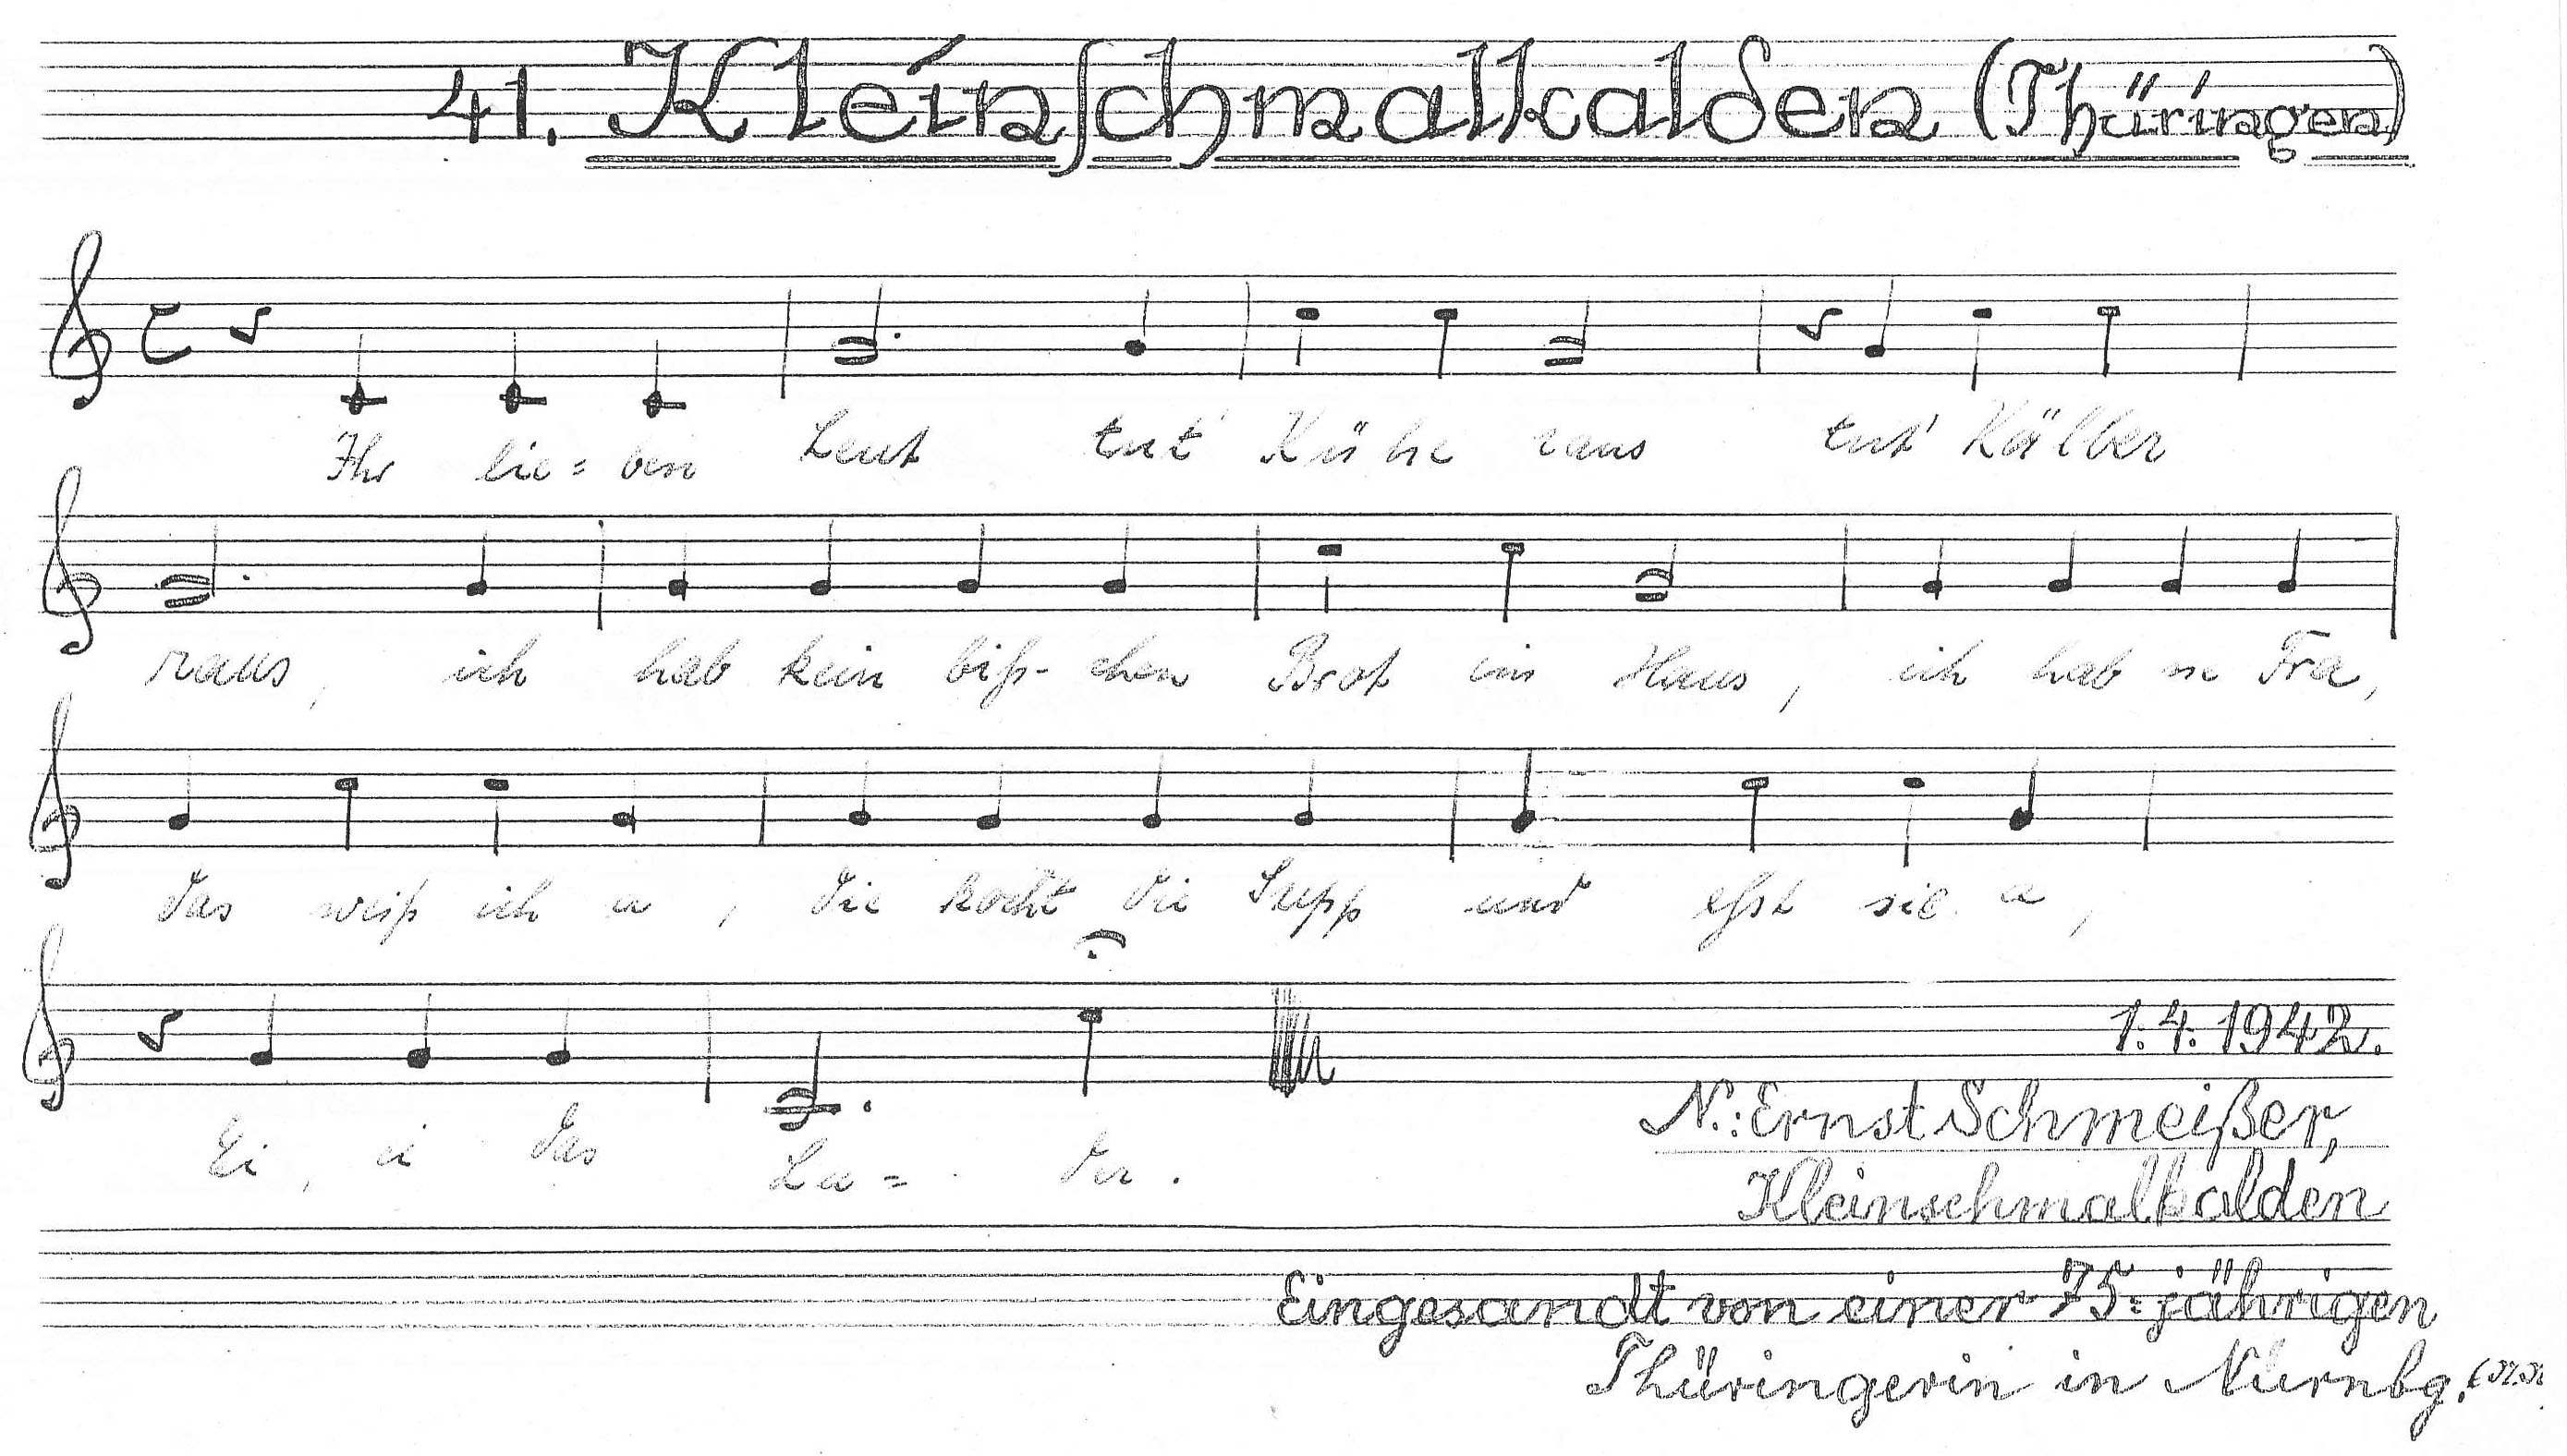 41. Kleinschmalkalden (Thüringen)
Ihr lie = ben Leut tut' Kühe raus tut' Kälber
raus, ich hab kein biß- chen Brot im Haus, ich hab ne Fra,
das weiß ich a, die kocht die Supp und eßt sie a,
Ei, ei das Lu = der.
1.4.1942.
N.: Ernst Schmeißer,
Kleinschmalkalden
Eingesandt von einer 75=jährigen
Thüringerin in Nürnbg.